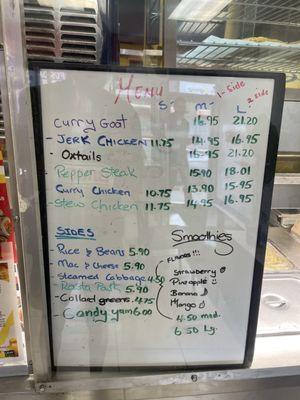 Menu
S- M- 1-Side L- 2 side
Curry Goat 16.95 21.20
- Jerk Chicken 11.75 14.95 16.95
- Oxtails 16.95 21.20
- Pepper Steak 15.90 18.01
Curry Chicken 10.75 13.90 15.95
- Stew Chicken 11.75 14.95 16.95
SIDES
- Rice & Beans 5.90
- Mac & cheese 5.90
- Steamed Cabbage 4.50
- Rasta Pasta 5.90
- Collard greens 4.75
- Candy yam 6.00
Smoothies
- FLAVORS!!!
Strawberry
Pineapple
Banana
Mango
4.50 med.
6.50 Lg.